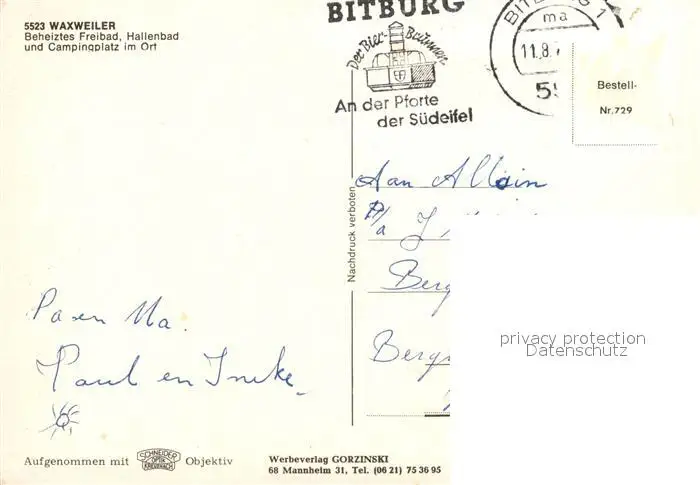 5523 WAXWEILER
Beheiztes Freibad, Hallenbad
und Campingplatz im Ort
BITBURG
Der Bier-Brunnen
An der Pforte
der Südeifel
BITBURG 1
ma
11.8.
55
Bestell-
Nr. 729
Nachdruck verboten
Aan Alloin
P/a J
Berg
Berg
privacy protection
Datenschutz
Pa en Ma.
Paul en Ineke
Aufgenommen mit SCHNEIDER OPTIK KREUZNACH Objektiv
Werbeverlag GORZINSKI
68 Mannheim 31, Tel. (06 21) 75 36 95